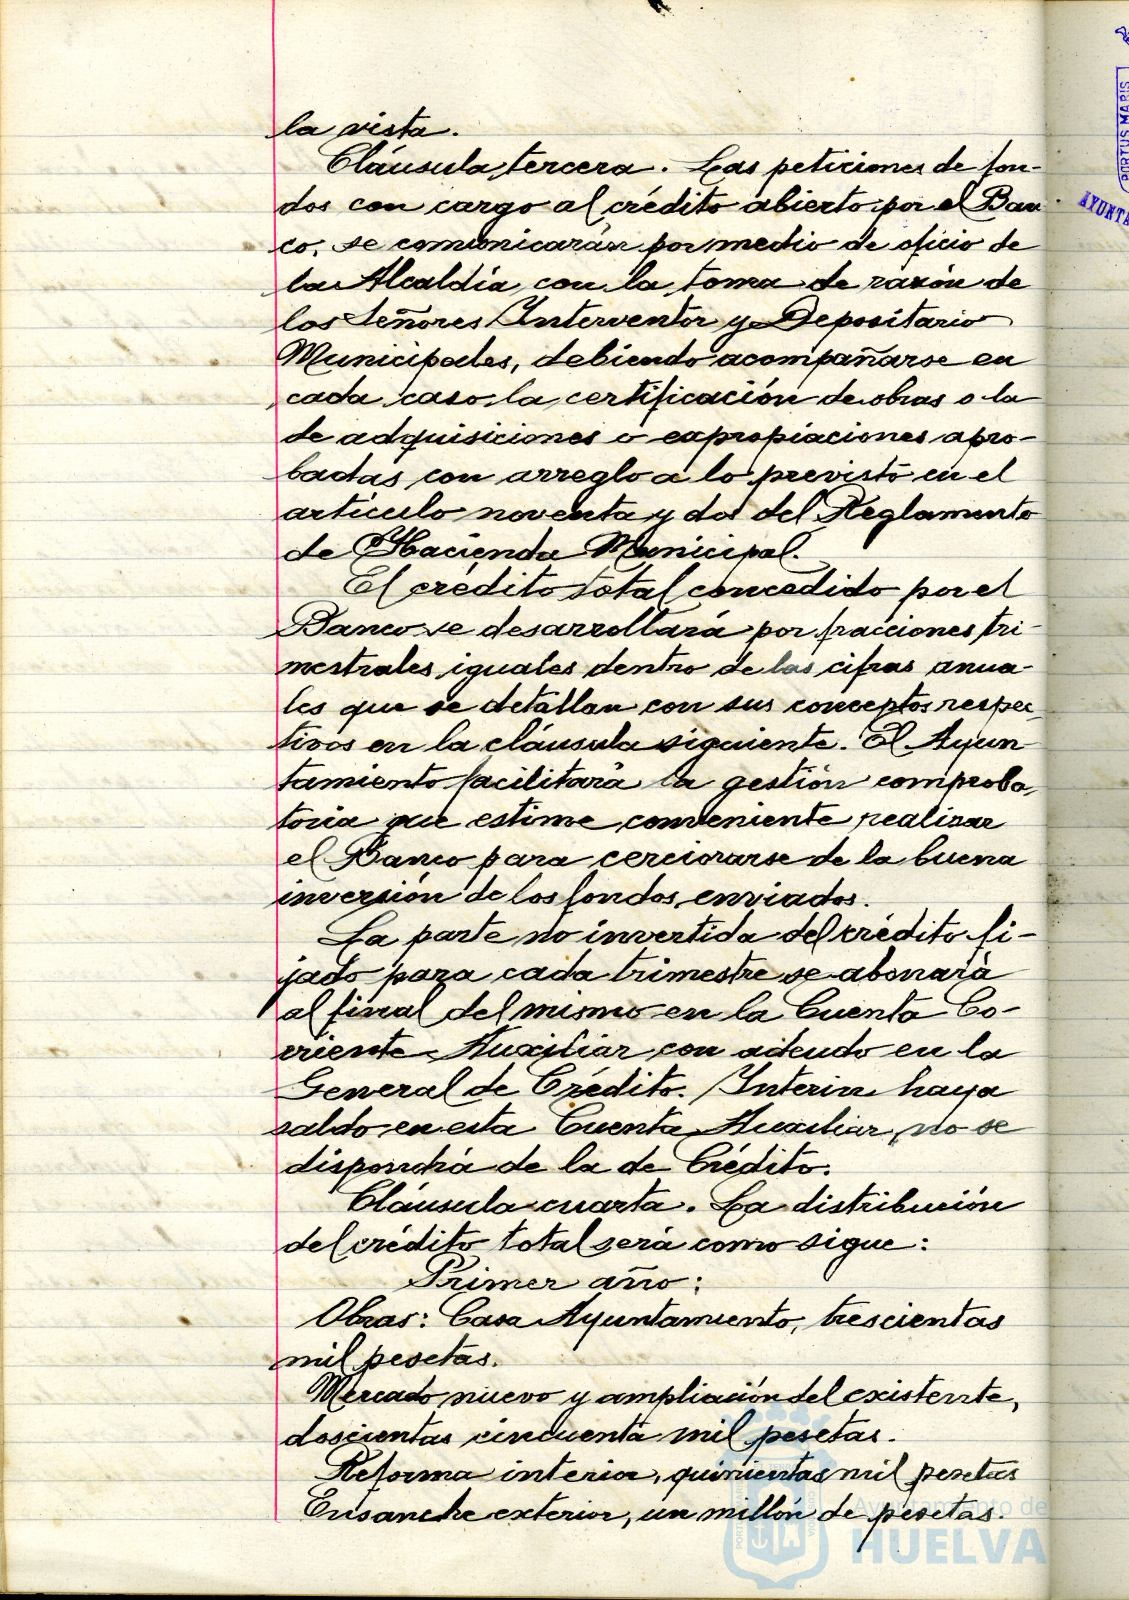 la vista.
Cláusula tercera. Las peticiones de fon-
dos con cargo al crédito abierto por el Ban
co, se comunicarán por medio de oficio de
la Alcaldía, con la toma de razón de
los Señores Interventor y Depositario
Municipales, debiendo acompañarse en
cada caso, la certificación de obras o la
de adquisiciones o expropiaciones apro-
badas con arreglo a lo previsto en el
artículo noventa y dos del Reglamento
de Hacienda Municipal.
El crédito total concedido por el
Banco se desarrollará por fracciones tri-
mestrales iguales dentro de las cifras anua-
les que se detallan con sus conceptos respec-
tivos en la cláusula siguiente. El Ayun
tamiento facilitará la gestión comproba-
toria que estime conveniente realizar
el Banco para cerciorarse de la buena
inversión de los fondos enviados.
La parte no invertida del crédito fi-
jado para cada trimestre se abonará
al final del mismo en la Cuenta Co-
rriente Auxiliar con adeudo en la
General de Crédito. Interin haya
saldo en esta Cuenta Auxiliar, no se
dispondrá de la de Crédito.
Cláusula cuarta. La distribución
del crédito total será como sigue:
Primer año:
Obras: Casa Ayuntamiento, trescientas
mil pesetas.
Mercado nuevo y ampliación del existente,
doscientas cincuenta mil pesetas.
Reforma interior, quinientas mil pesetas
Ensanche exterior, un millón de pesetas.
Ayuntamiento de
HUELVA
PORTUS MARIS
AYUNTA